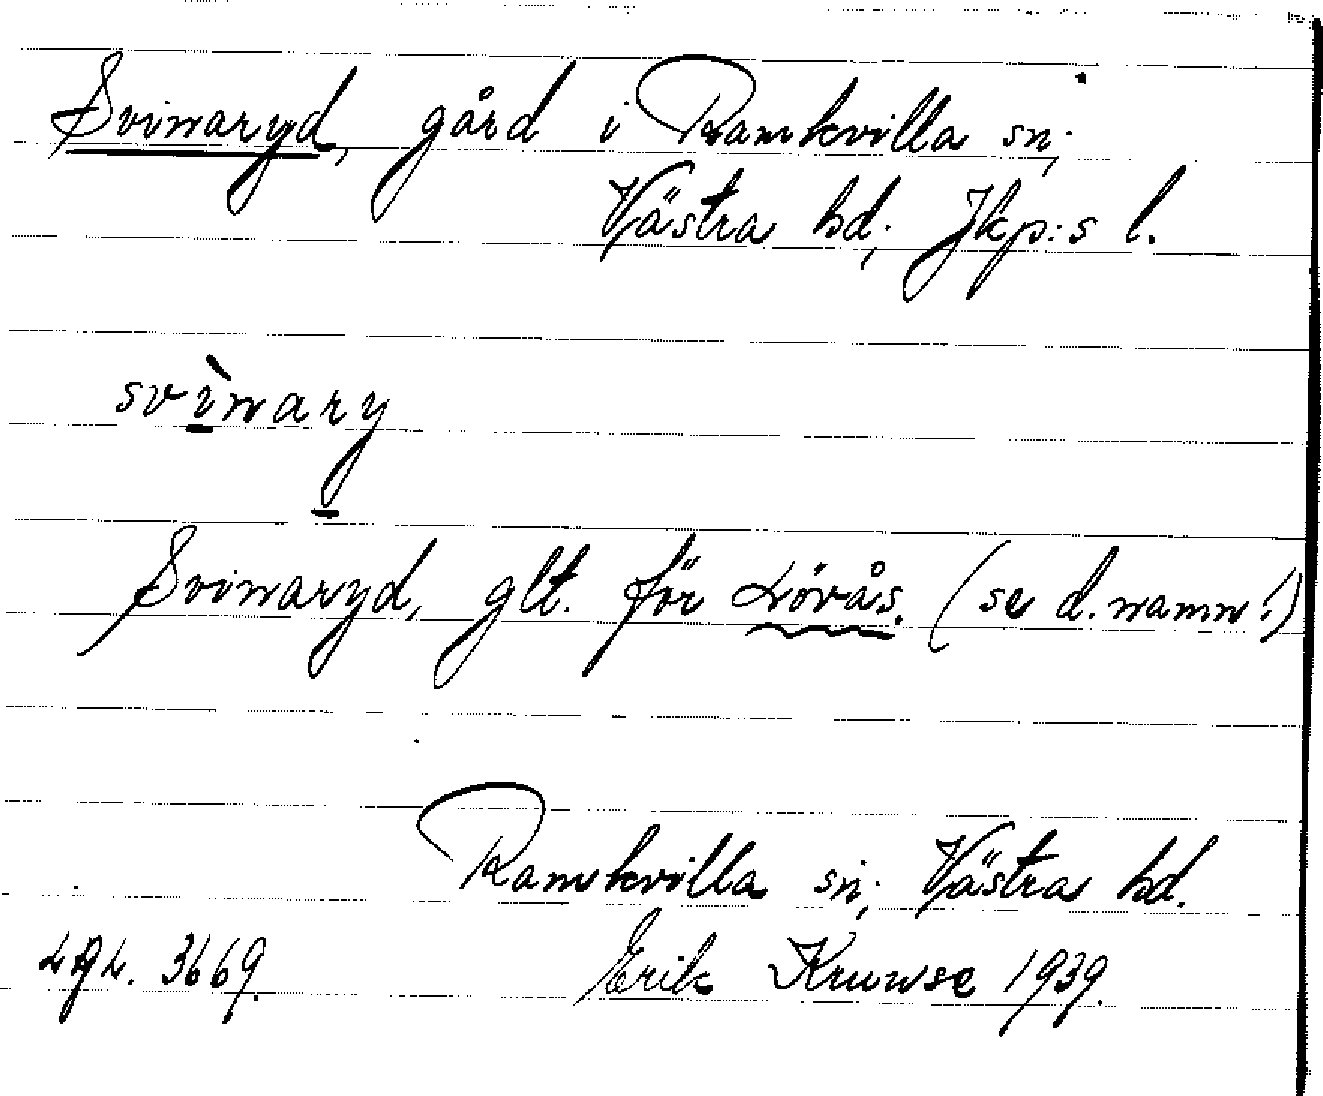 Svinaryd, gård i Ramkvilla sn;
Västra hd; Jkp:s l.
svìnary
Svinaryd, glt. för Lövås. (se d. namn!)
Ramkvilla sn; Västra hd.
3669. Erik Kruuse 1939.